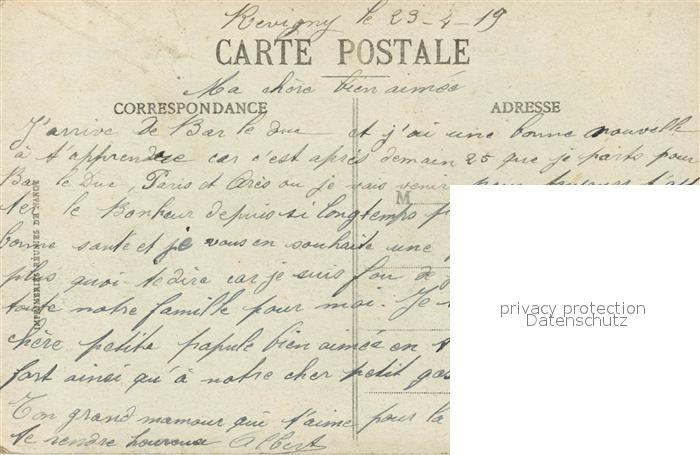 Revigny le 23-4-19
CARTE POSTALE
Ma chère bien aimée
CORRESPONDANCE
ADRESSE
J'arrive de Bar le duc et j'ai une bonne nouvelle
à t'apprendre car c'est après demain 25 que je parts pour
Bar le Duc, Paris et ou je vais venir pour toujours
M
le Bonheur depuis si longtemps
bonne santé et je vous en souhaite une
plus quoi te dire car je suis fou de
toute notre famille pour moi. Je
chère petite papule bien aimée en
fort ainsi qu'à notre cher petit
Ton grand mamour qui t'aime pour la
te rendre heureux Albert
IMPRIMERIES RÉUNIES DE NANCY
privacy protection
Datenschutz